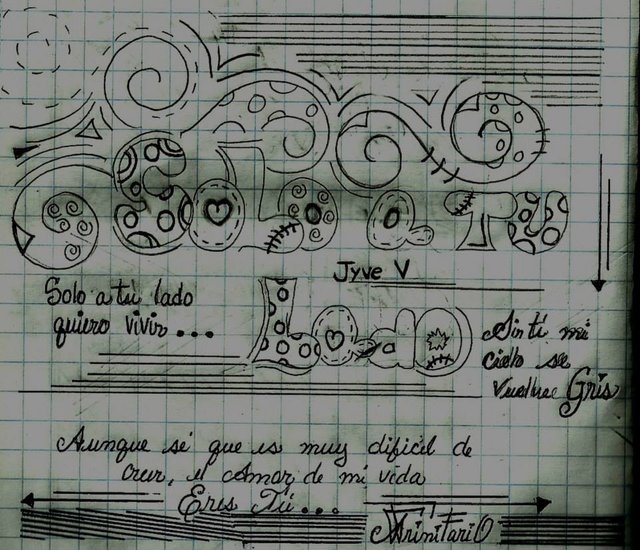 Solo a Tu
Jyve V
Lado
Solo a tu lado
quiero vivir...
Sin ti mi
cielo se
Gris
Aunque sé que es muy dificil de
creer, el Amor de mi vida
Eres Tú...
TriniTariO